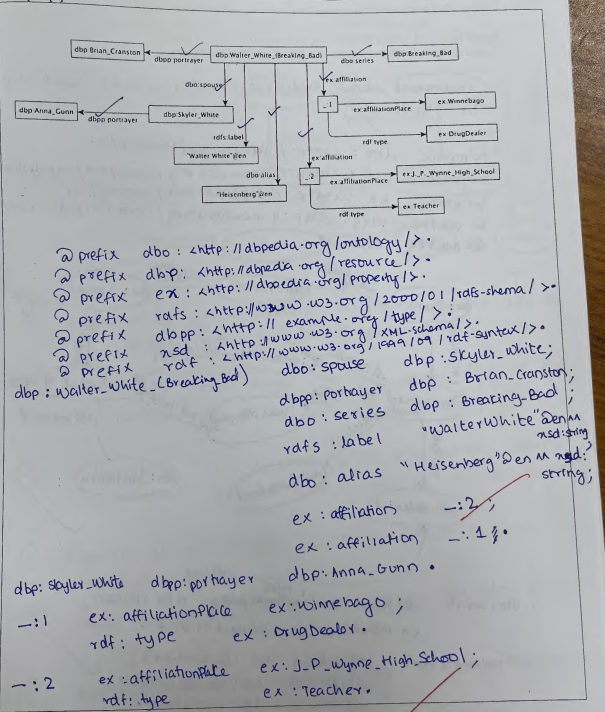 dbp:Brian_Cranston
dbpp:portrayer
dbp:Walter_White_(Breaking_Bad)
dbo:series
dbp:Breaking_Bad
dbo:spouse
ex:affiliation
_:1
ex:affiliationPlace
ex:Winnebago
dbp:Anna_Gunn
dbpp:portrayer
dbp:Skyler_White
rdf:type
ex:DrugDealer
rdfs:label
"Walter White"@en
ex:affiliation
dbo:alias
_:2
ex:affiliationPlace
ex:J._P._Wynne_High_School
"Heisenberg"@en
rdf:type
ex:Teacher
@prefix dbo : <http://dbpedia.org/ontology/>.
@prefix dbp: <http://dbpedia.org/resource/>.
@prefix ex : <http://dbpedia.org/property/>.
@prefix rdfs : <http://www.w3.org/2000/01/rdfs-shema/>.
@prefix dbpp : <http://example.org/type/>.
@prefix xsd : <http://www.w3.org/XML-schema/>.
@prefix rdf : <http://www.w3.org/1999/09/rdf-syntax/>.
dbp : Walter_White_(Breaking_Bad) dbo: spouse dbp : Skyler_White;
dbpp: portrayer dbp : Brian_Cranston;
dbo : series dbp : Breaking_Bad ;
rdfs : label "WalterWhite"@en^^
xsd:string
dbo : alias "Heisenberg"@en ^^ xsd:
string;
ex : affiliation _:2 ;
ex : affiliation _:1 .
dbp: Skyler_White dbpp: portrayer dbp: Anna_Gunn .
_:1 ex: affiliationPlace ex: Winnebago ;
rdf: type ex : DrugDealer.
_:2 ex :affiliationPlace ex: J_P_Wynne_High_School ;
rdf: type ex : Teacher.